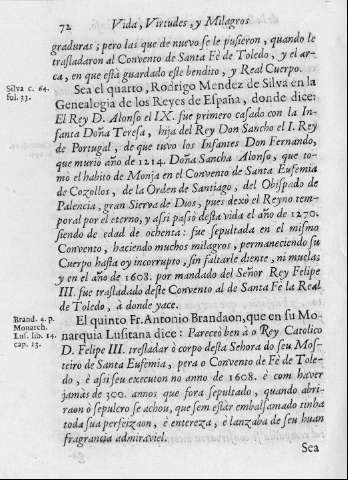 72 Vida, Virtudes, y Milagros
graduras; pero las que de nuevo se le pusieron, quando le
trasladaron al Convento de Santa Fè de Toledo, y el ar-
ca, en que està guardado este bendito, y Real Cuerpo.
Silva c. 64.
ful. 33.
Sea el quarto, Rodrigo Mendez de Silva en la
Genealogia de los Reyes de España, donde dice:
El Rey D. Alonso el IX. fue primero casado con la In-
fanta Doña Teresa, hija del Rey Don Sancho el I. Rey
de Portugal, de que tuvo los Infantes Don Fernando,
que murió año de 1214. Doña Sancha Alonso, que to-
mò el habito de Monja en el Convento de Santa Eufemia
de Cozollos, de la Orden de Santiago, del Obispado de
Palencia, gran Sierva de Dios, pues dexò el Reyno tem-
poral por el eterno, y assi passò desta vida el año de 1270.
siendo de edad de ochenta: fue sepultada en el mismo
Convento, haciendo muchos milagros, permaneciendo su
Cuerpo hasta oy incorrupto, sin faltarle diente, ni muelas
y en el año de 1608. por mandado del Señor Rey Felipe
III. fue trasladado deste Convento al de Santa Fè la Real
de Toledo, à donde yace.
Brand. 4. p.
Monarch.
Lus. lib. 14.
cap. 13.
El quinto Fr. Antonio Brandaon, que en su Mo-
narquia Lusitana dice: Pareceò ben à o Rey Catolico
D. Felipe III. tresladar ò corpo desta Sehora do seu Mos-
teiro de Santa Eufemia, pera o Convento de Fè de Tole-
do, è assi seu executon no anno de 1608. è com haver
jamàs de 300. annos que fora sepultado, quando abri-
raon ò sepulcro se achou, que sem estàr embalsamado tinha
toda sua perfeizaon, è entereza, è lanzaba de seu huan
fragrancia admiraviel.
Sea